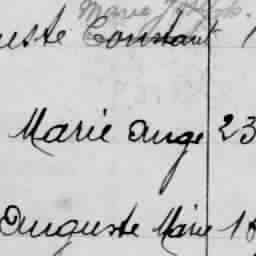 Marie Joseph.
uste Constant 1
Marie Ange 23
Auguste Marie 18